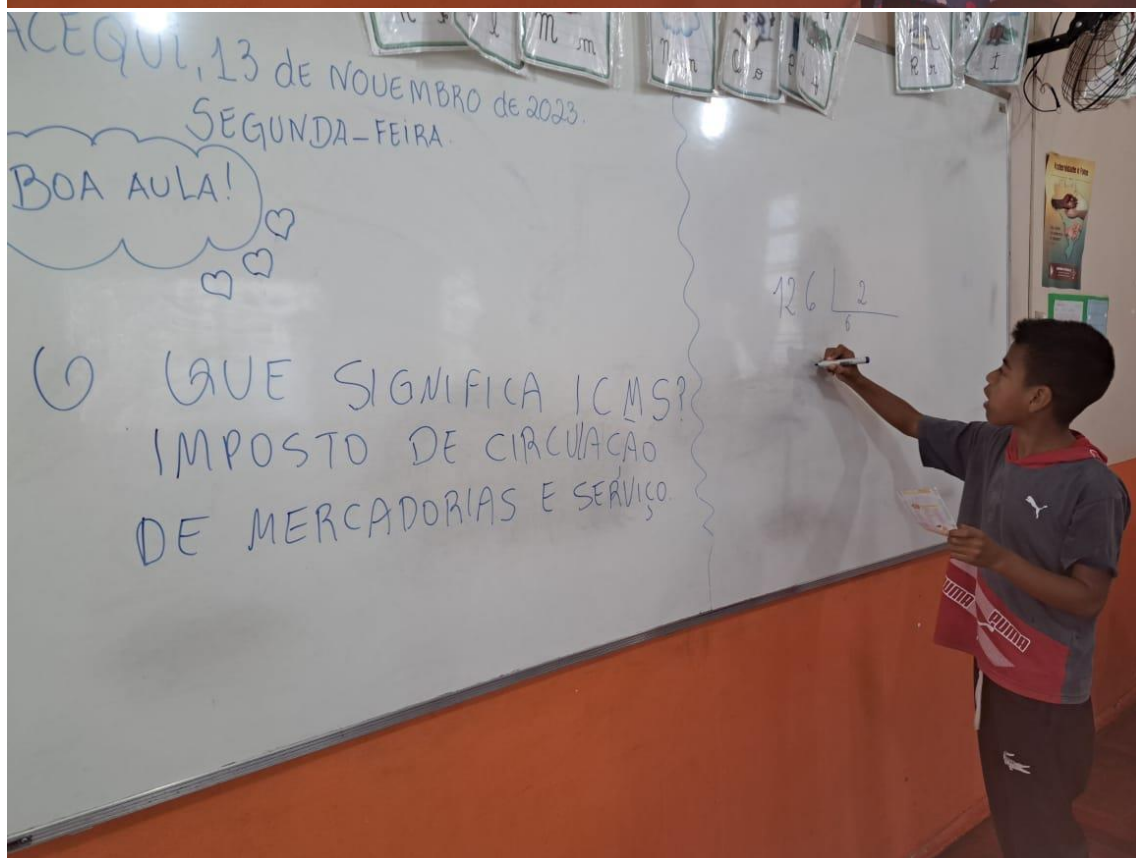 ACEQUI, 13 DE NOVEMBRO de 2023.
SEGUNDA-FEIRA.
BOA AULA!
O QUE SIGNIFICA ICMS?
IMPOSTO DE CIRCULAÇÃO
DE MERCADORIAS E SERVIÇO.
126 2
6
m m
PUMA